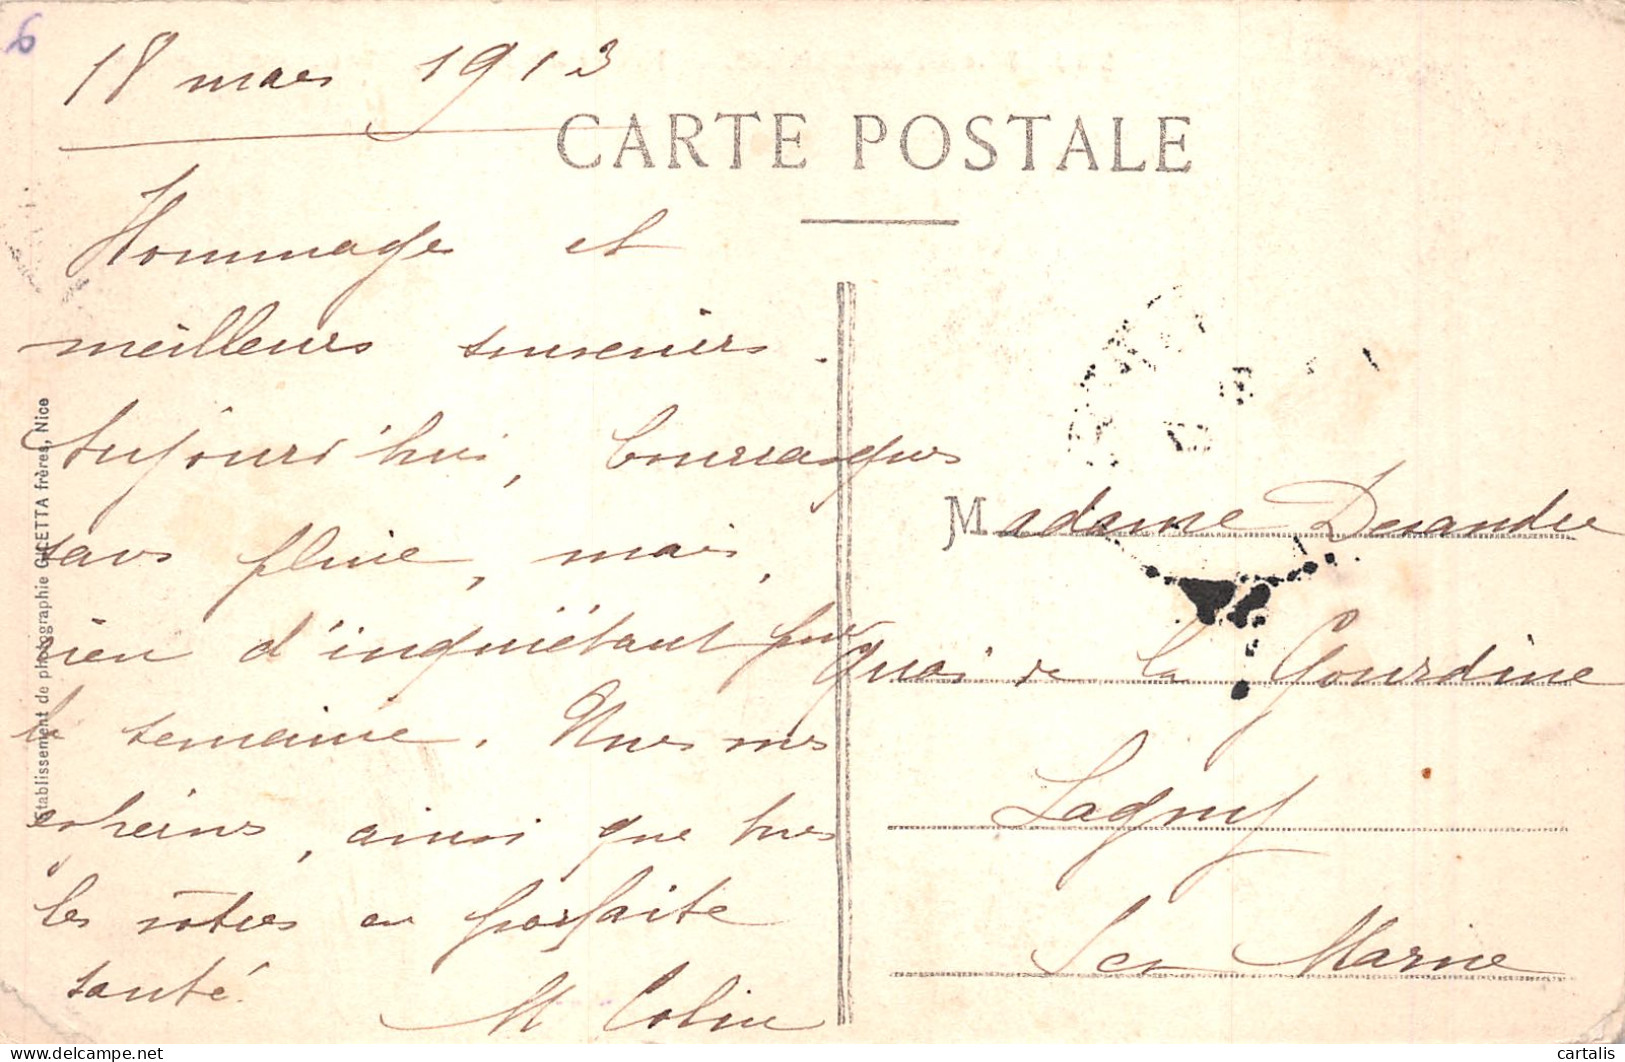 6
18 mars 1913
CARTE POSTALE
Hommage et
meilleurs souvenirs.
Aujourd'hui, bourrasques
sans pluie, mais,
rien d'inquiétant pour
la semaine. Nous mes
ainsi que tous
les vôtres en parfaite
santé.
M Colin
Etablissement de photographie GILETTA frères, Nice
Madame Desandre
Quai de la Gourdine
Lagny
Sur Marne
cartalis